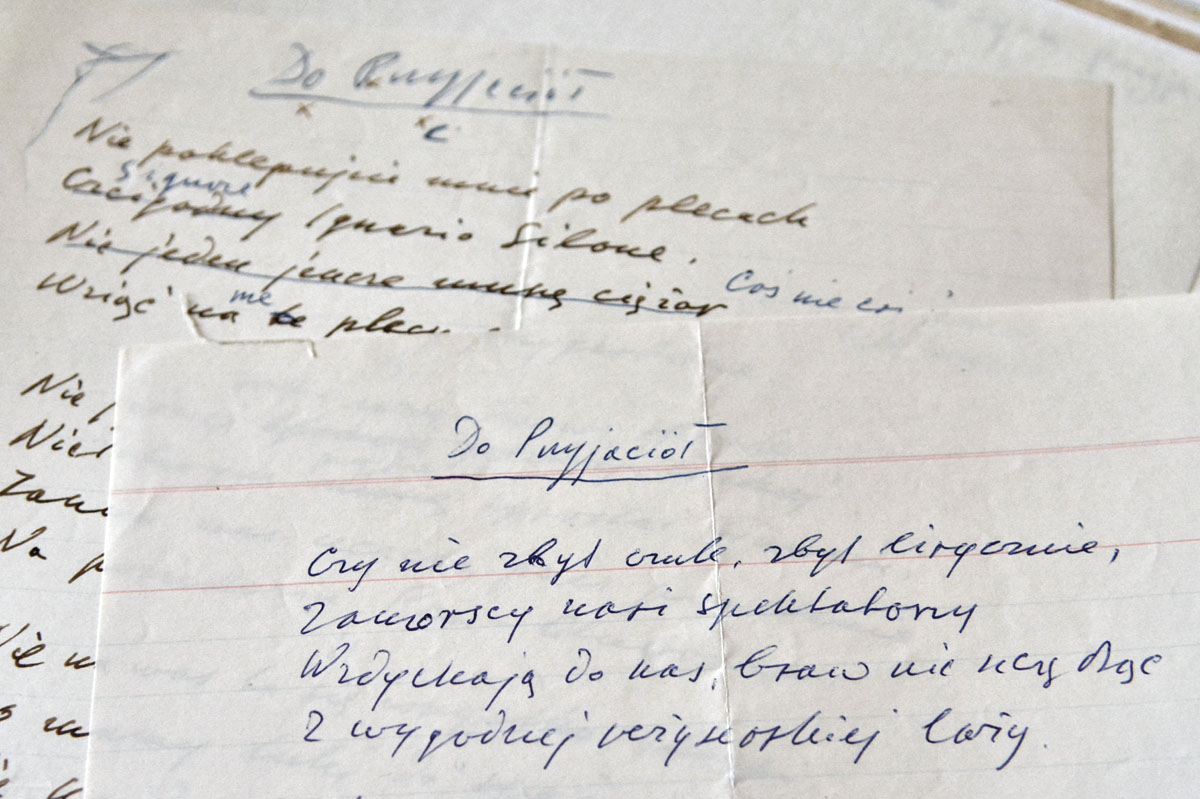 Do Przyjaciół
Nie poklepujcie mnie po plecach
Signore
Czcigodny Ignazio Silone.
Nie jeden jeszcze muszę ciężar
Coś nie coś
Wziąć na me te plecy.
Nie
Na p
Nie w
Do Przyjaciół
Czy nie zbyt czule, zbyt lirycznie,
Zamorscy nasi spektatorzy
Wzdychają do nas, braw nie szczędząc
Z wygodnej reżyserskiej loży.